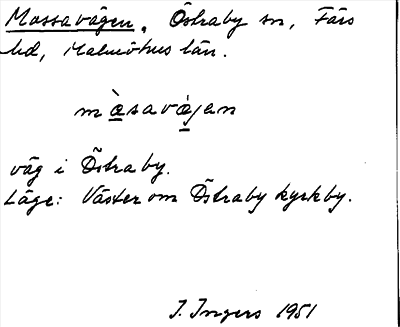 Massavägen, Östraby sn, Färs
hd, Malmöhus län.
màsavàjan
väg i Östraby.
Läge: Väster om Östraby kyrkby.
I. Ingers 1951